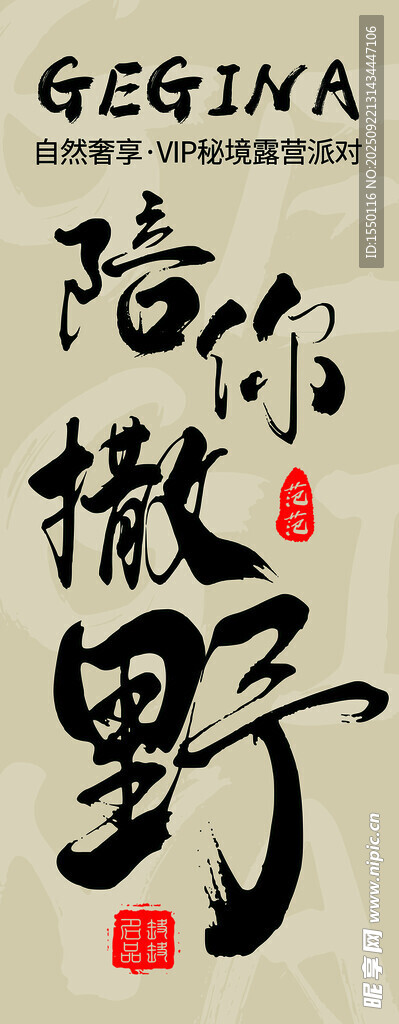 GEGINA
自然奢享·VIP秘境露营派对
陪你
撒野
范范
名品
ID:1550116 NO:20250922131434447106
www.nipic.cn
昵享网